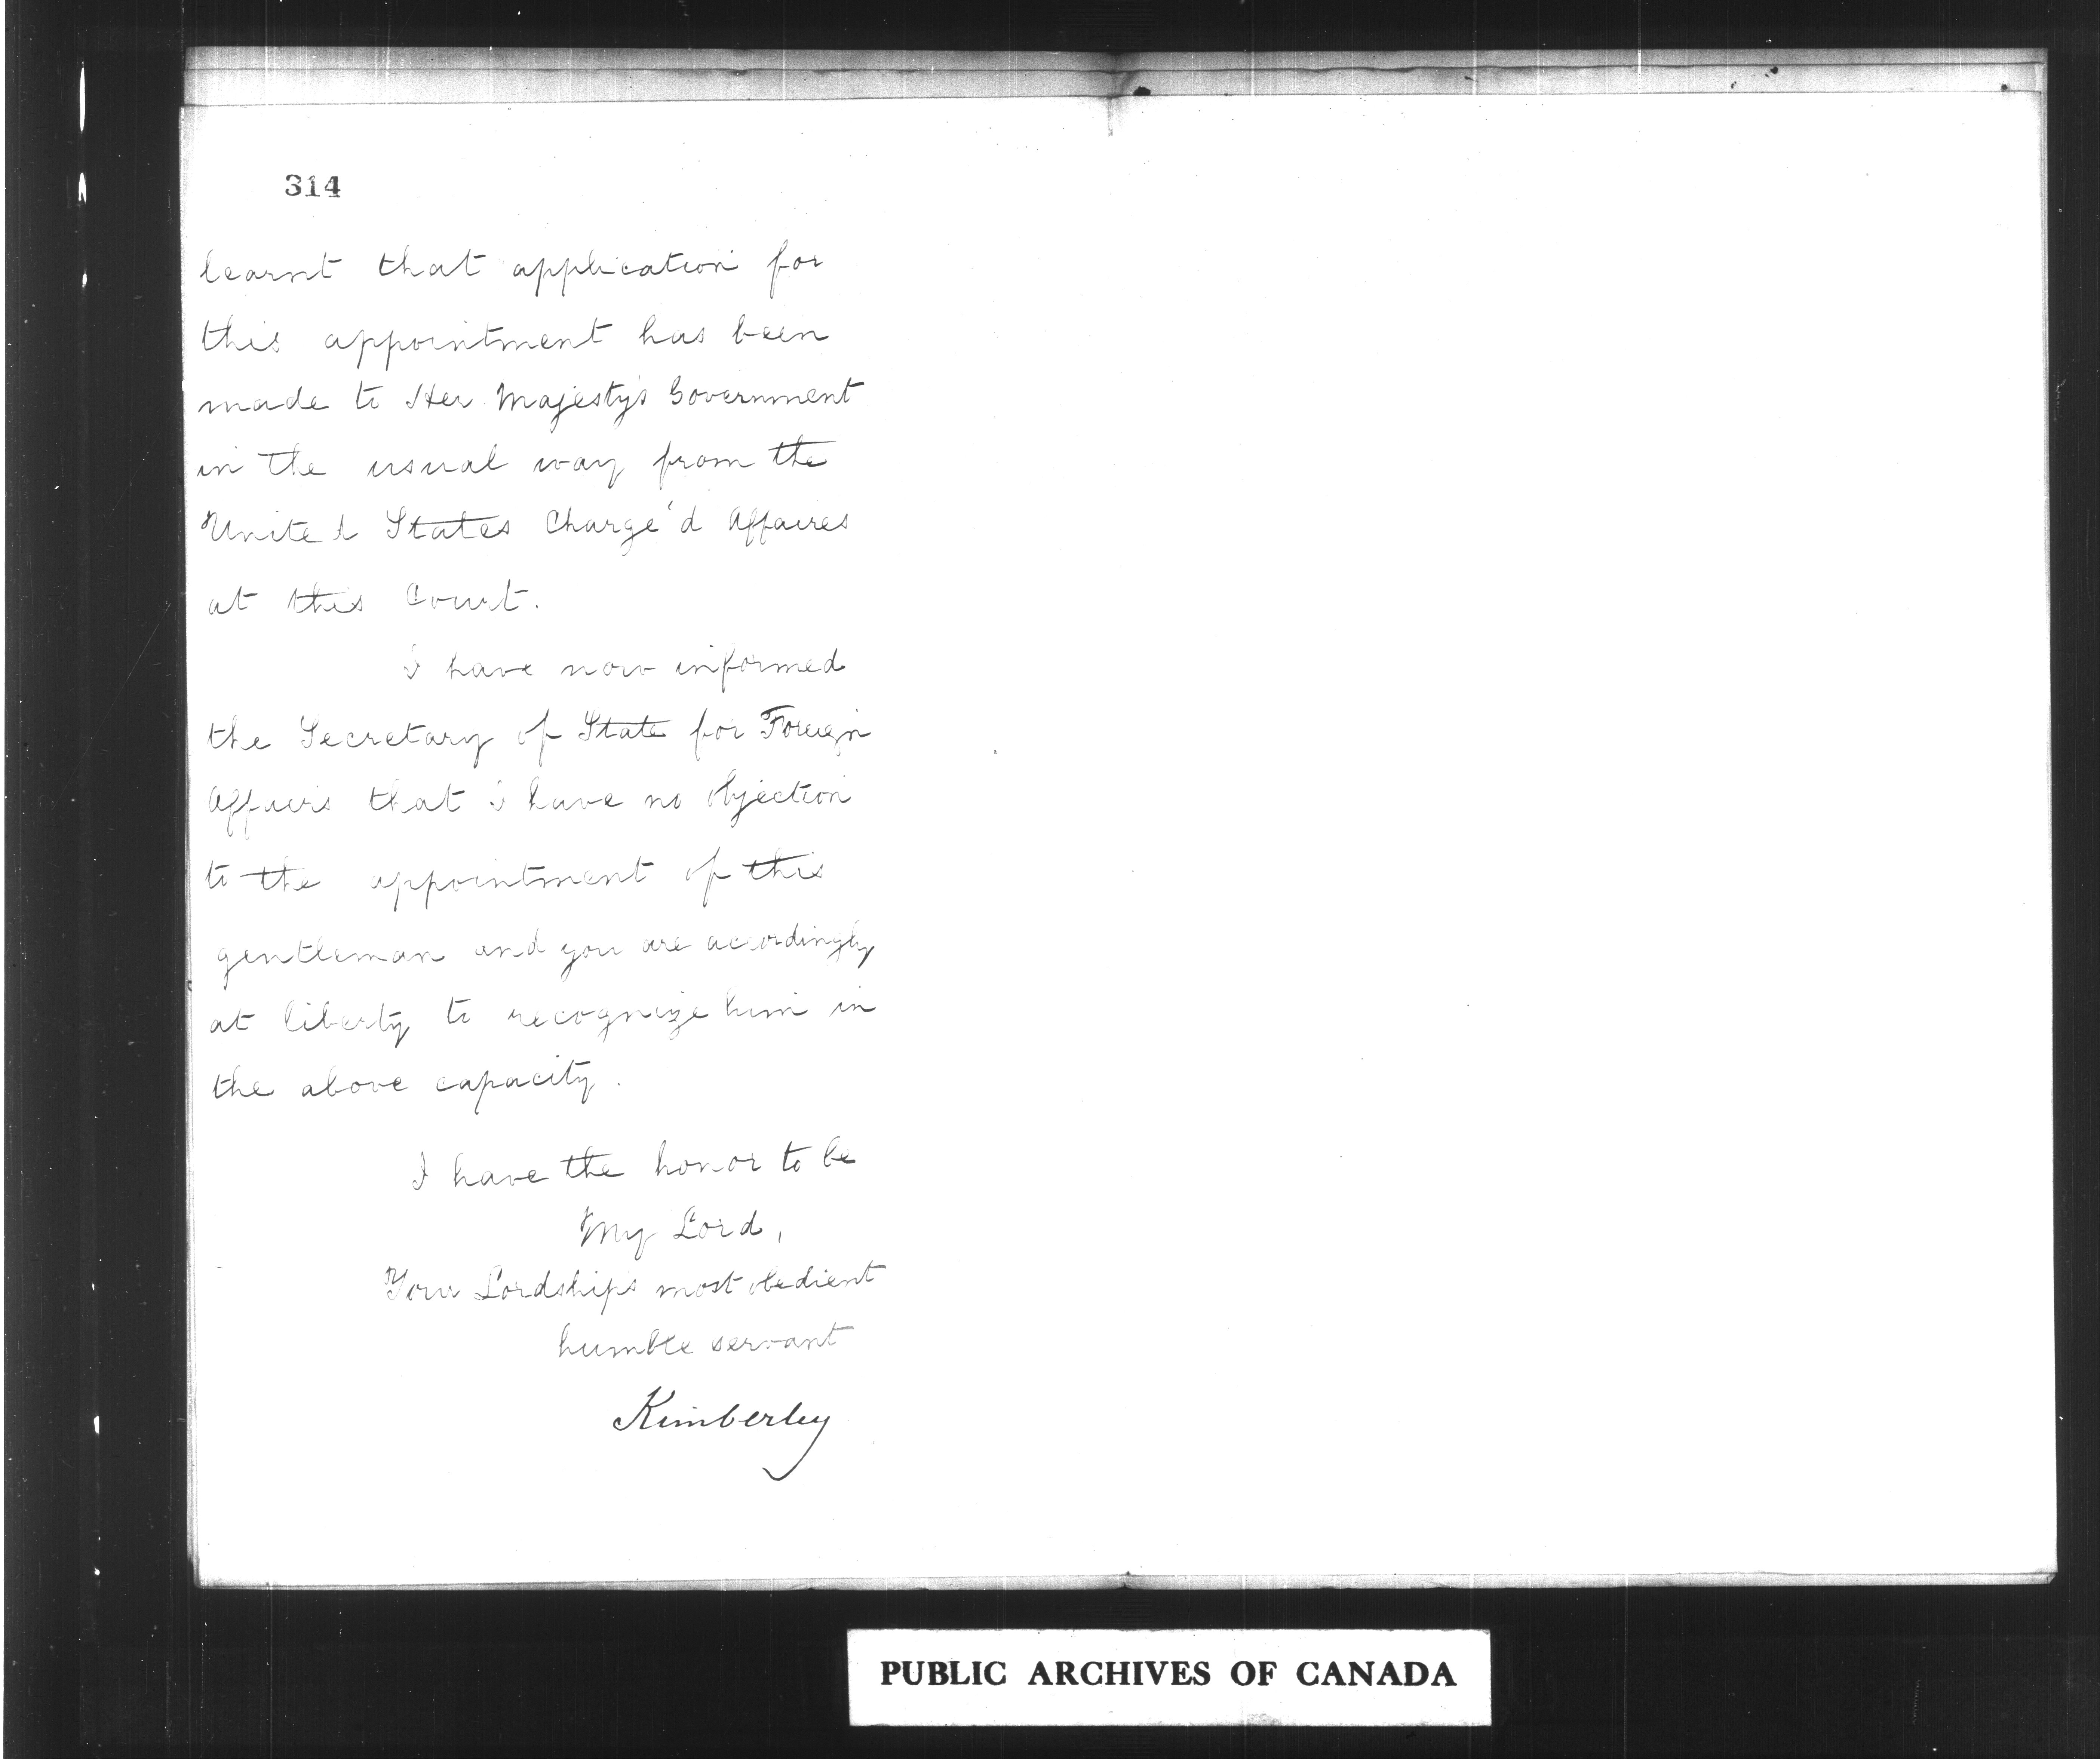 314
learnt that application for
this appointment has been
made to Her Majesty's Government
in the usual way from the
United States Chargé d'Affaires
at this Court.
I have now informed
the Secretary of State for Foreign
Affairs that I have no objection
to the appointment of this
gentleman and you are accordingly
at liberty to recognize him in
the above capacity.
I have the honor to be
My Lord,
Your Lordships most obedient
humble servant
Kimberley
PUBLIC ARCHIVES OF CANADA